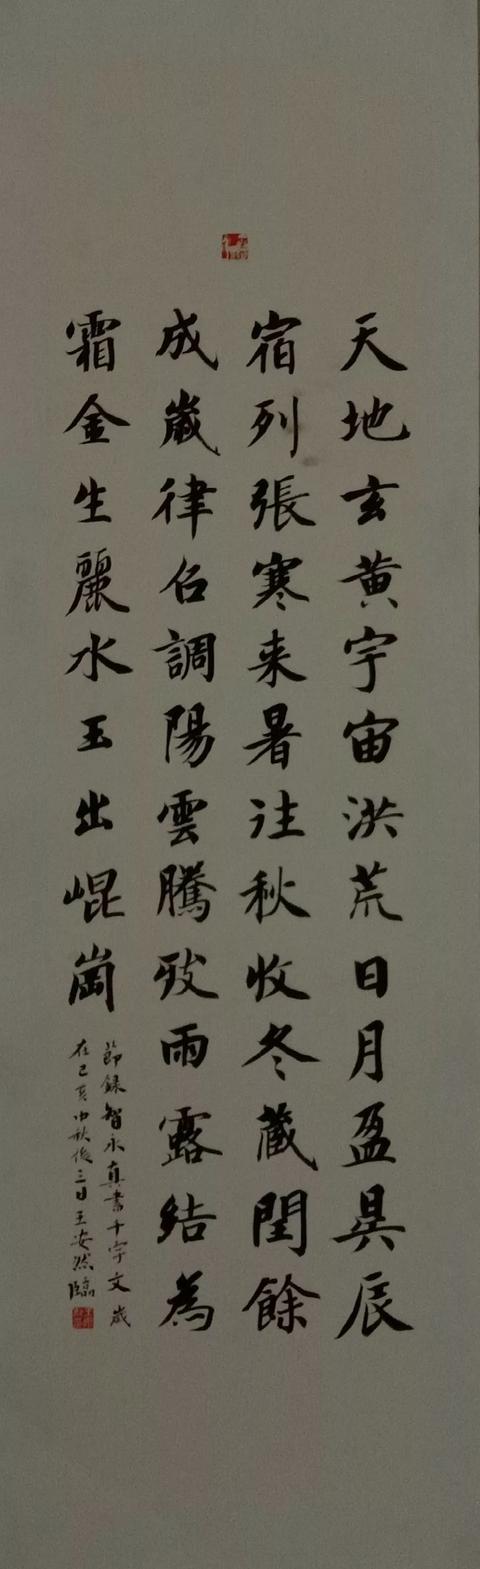 天地玄黄宇宙洪荒日月盈昃辰
宿列張寒来暑往秋收冬蔵閏餘
成歲律召調陽雲騰致雨露結為
霜金生麗水玉出崐崗
節録智永真書千字文歲
在己亥中秋後三日王安然臨